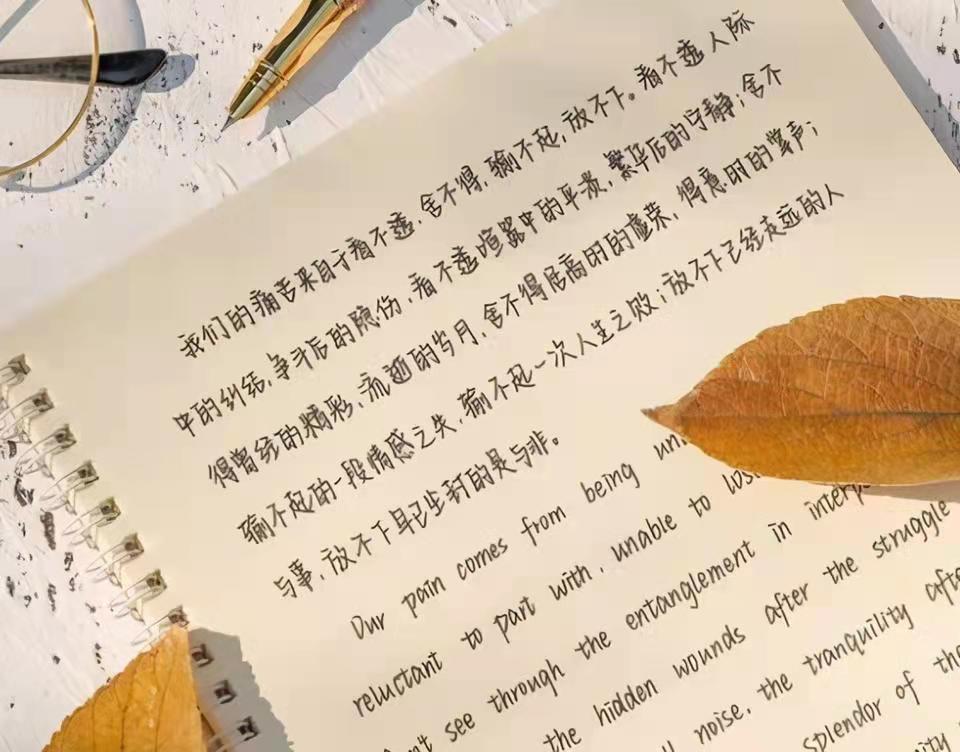 我们的痛苦来自于看不透,舍不得,输不起,放不下。看不透人际
中的纠结,争斗后的隐伤,看不透喧嚣中的平淡,繁华后的宁静;舍不
得曾经的精彩,流逝的岁月,舍不得居高时的虚荣,得意时的掌声;
输不起的一段情感之失,输不起一次人生之败;放不下已经走远的人
与事,放不下早已尘封的是与非。
Our pain comes from being
reluctant to part with, unable to
see through the entanglement in
the hidden wounds after the struggle
noise, the tranquility
splendor of